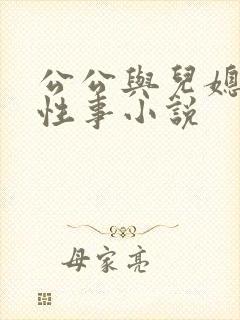 公公與兒媳
性事小說
母家亮